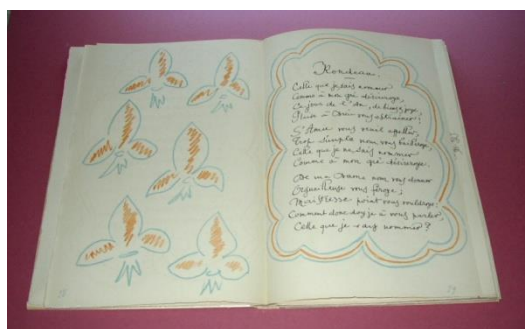 Rondeau.
Celle que je sais nommer
Comme à mon gré désireroye,
Ce jour de l'An, de biens joye,
Plaise à Dieu vous
S'Amie vous veuil appeller,
Trop simple nom vous bailleroye,
Celle que je ne sais nommer
Comme à mon gré désireroye.
De ma Dame nom vous donner
Orgueilleuse vous feroye;
Maistresse point vous vouldroye;
Comment donc doy je à vous parler
Celle que je nommer?